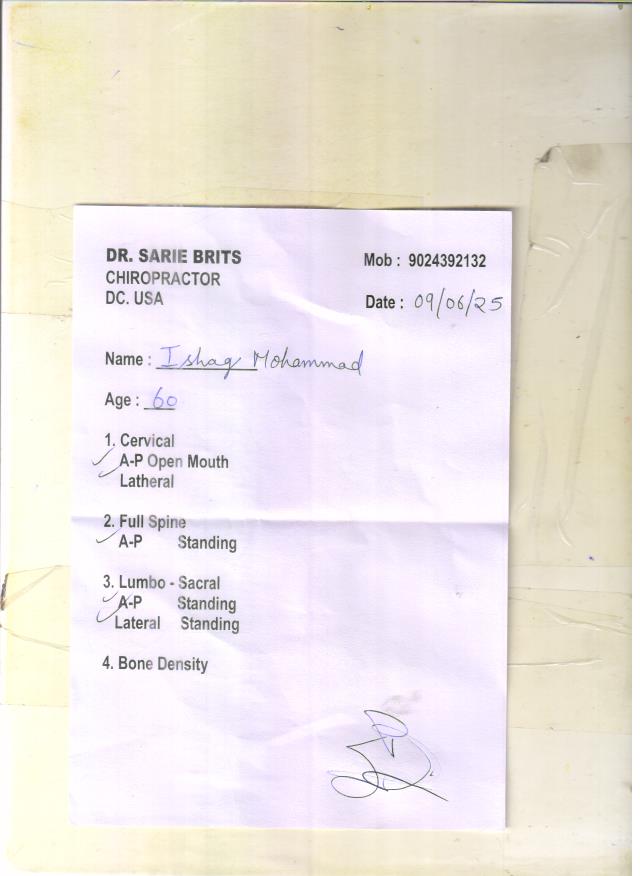 DR. SARIE BRITS
CHIROPRACTOR
DC. USA
Mob : 9024392132
Date : 09/06/25
Name : Ishaq Mohammad
Age : 60
1. Cervical
A-P Open Mouth
Latheral
2. Full Spine
A-P Standing
3. Lumbo - Sacral
A-P Standing
Lateral Standing
4. Bone Density